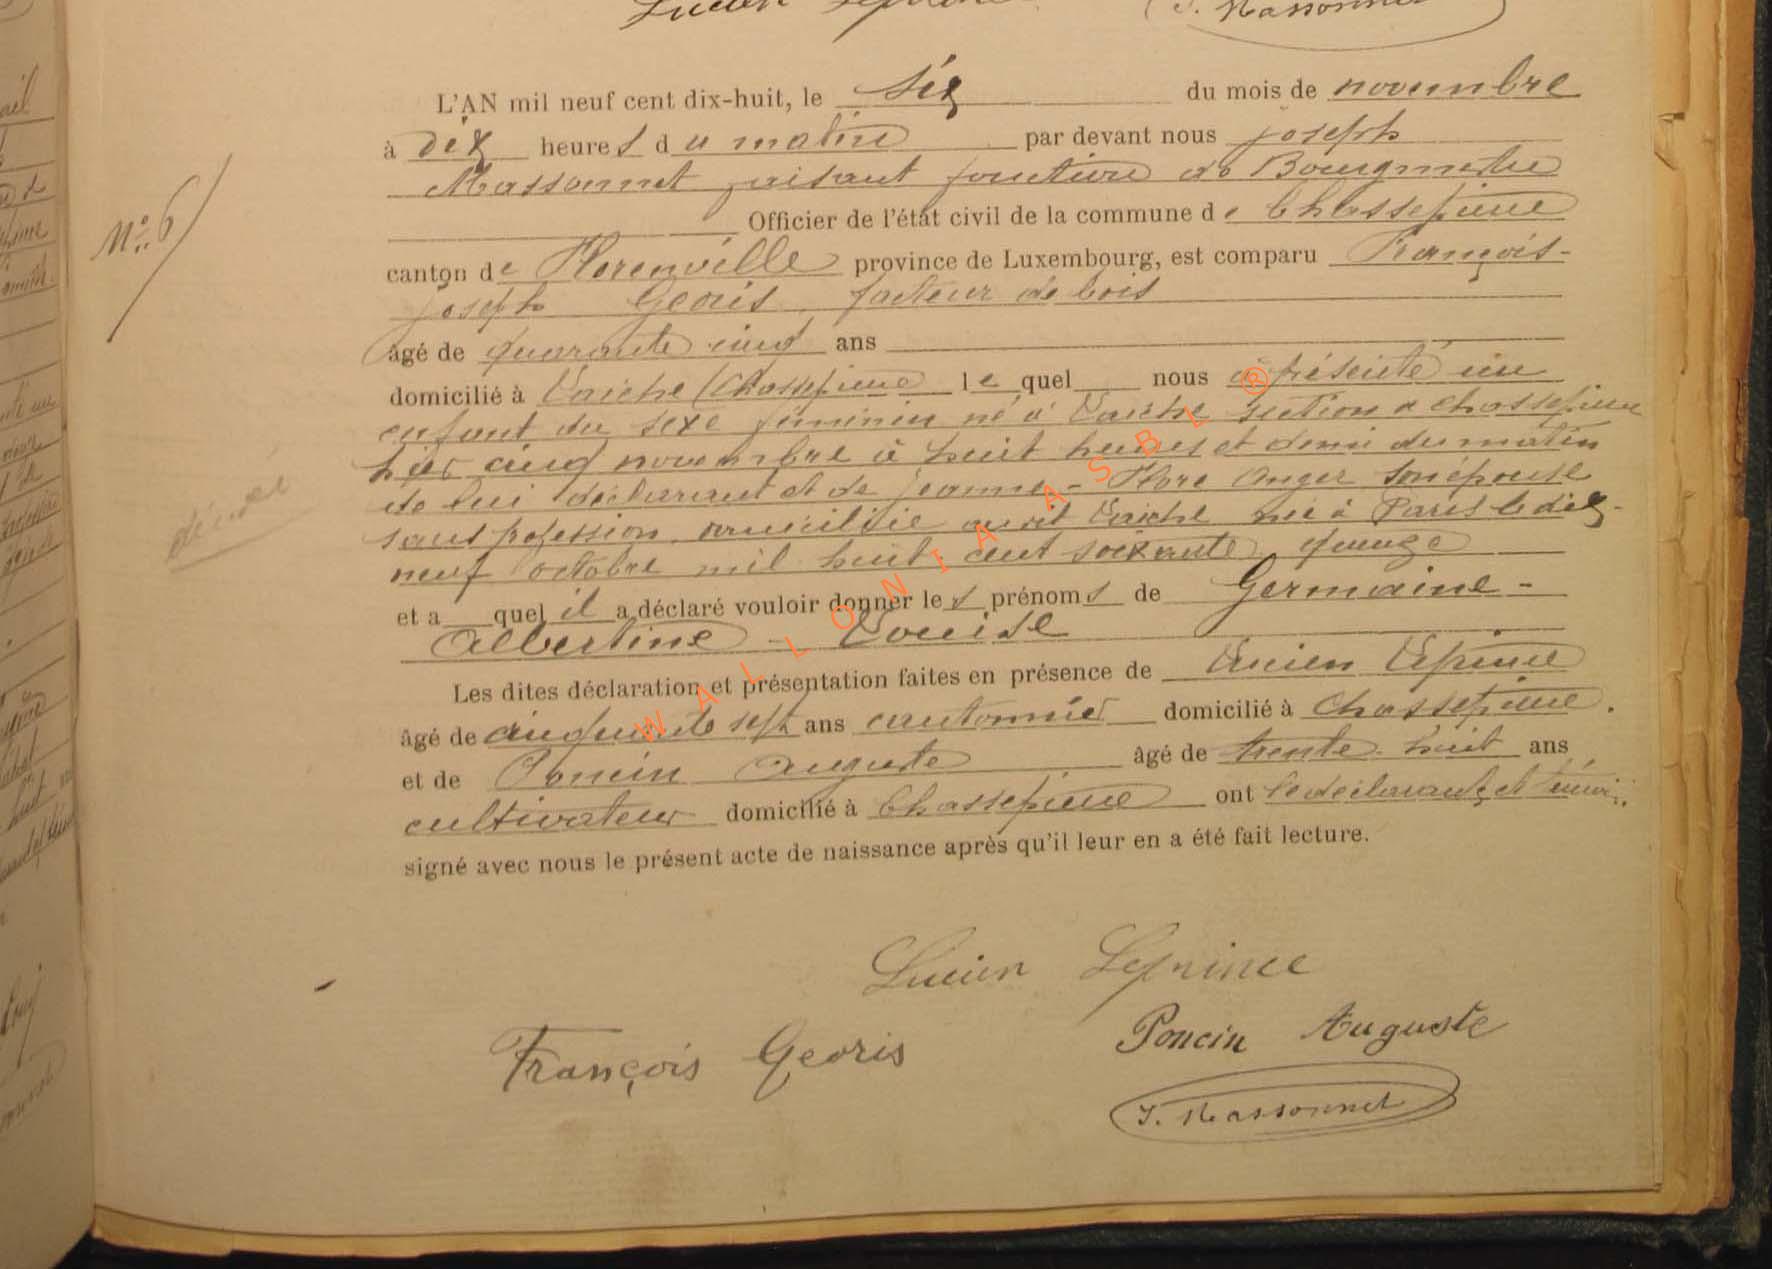 Lucien Leprince
J. Massonnet
N° 6
L'AN mil neuf cent dix-huit, le six du mois de novembre
à dix heures du matin par devant nous Joseph
Massonnet faisant fonctions de Bourgmestre
Officier de l'état civil de la commune de Chassepierre
canton de Florenville province de Luxembourg, est comparu François-
Joseph Georis, facteur de bois
âgé de quarante cinq ans
domicilié à Laiche (Chassepierre lequel nous a présenté un
enfant du sexe féminin né à Laiche section de Chassepierre
hier cinq novembre à huit heures et demie du matin
de lui déclarant et de Jeanne-Flore Anger son épouse
sans profession domiciliée audit Laiche née à Paris le dix-
neuf octobre mil huit cent soixante quinze
et a quel il a déclaré vouloir donner les prénoms de Germaine-
Albertine - Louise
Les dites déclaration et présentation faites en présence de Lucien Leprince
âgé de cinquante sept ans cantonnier domicilié à Chassepierre.
et de Poncin Auguste âgé de trente huit ans
cultivateur domicilié à Chassepierre ont le déclarant et témoins
signé avec nous le présent acte de naissance après qu'il leur en a été fait lecture.
Lucien Leprince
François Georis
Poncin Auguste
J. Massonnet
WALLONIA ASBL ®